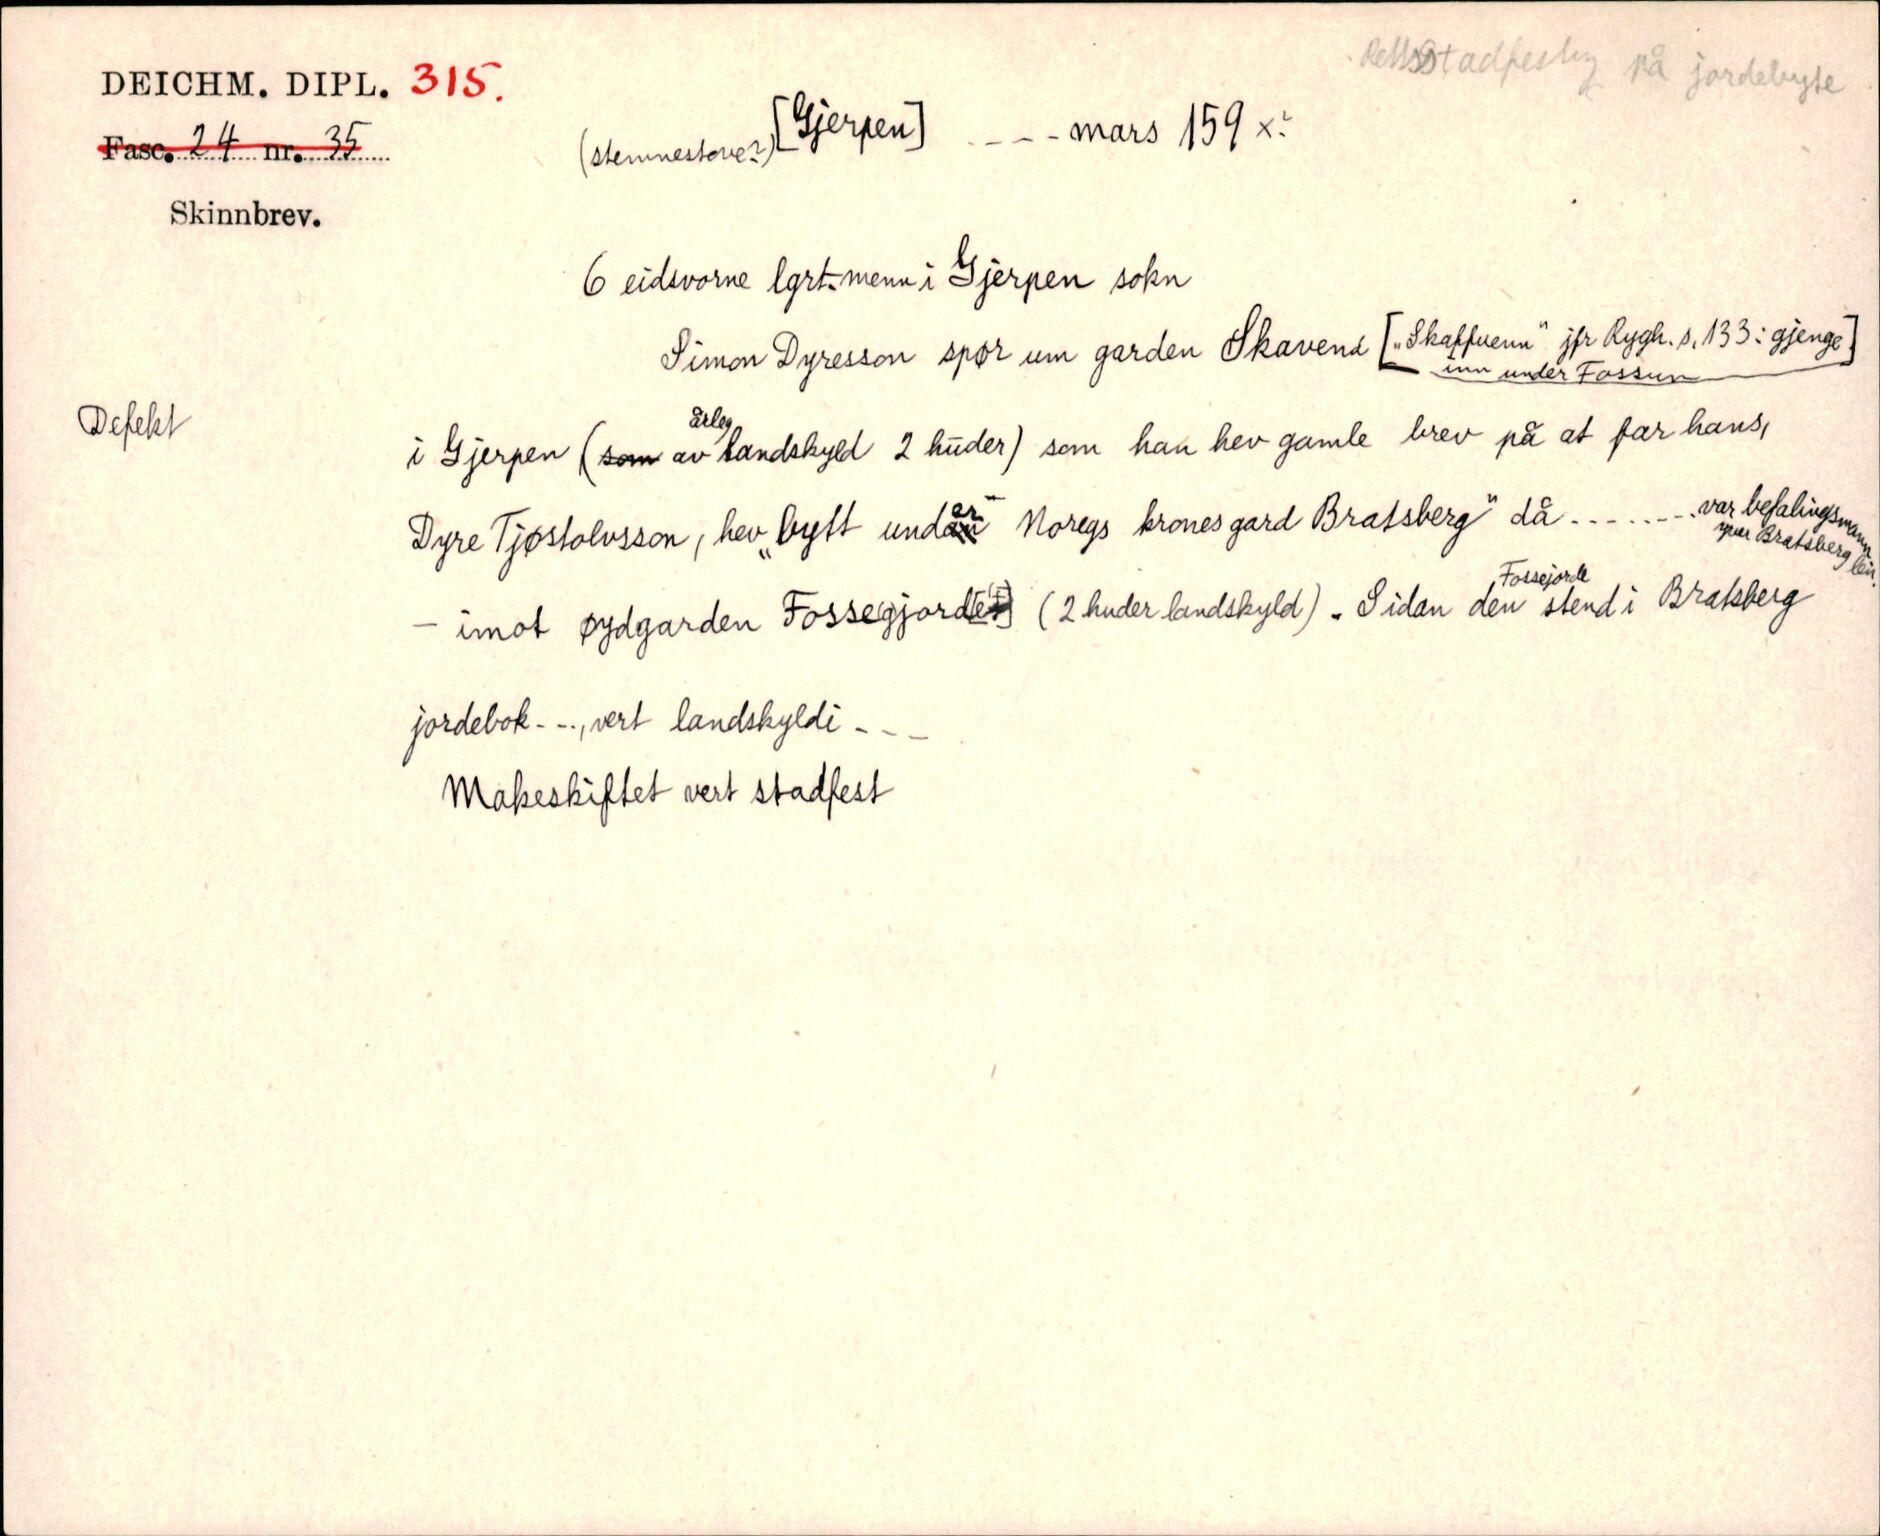 Rettsstadfesting på jordebyte
DEICHM. DIPL. 315.
Fasc. 24 nr. 35
Skinnbrev.
(stemnestove?) [Gjerpen] ---- mars 159x?
6 eidsvorne lgrt.menn i Gjerpen sokn
Simon Dyresson spør um garden Skavend ["Skaffuenn" jfr Rygh. s. 133: gjenge
inn under Fossum]
Defekt
i Gjerpen (som av årleg landskyld 2 huder) som han hev gamle brev på at far hans,
Dyre Tjøstolvsson, hev „bytt under Noregs krones gard Bratsberg" då ....... var befalingsmann
yver Bratsberg len.
- imot øydgarden Fosse(gjorde[t] (2 huder landskyld). Sidan den Fossejorde stend i Bratsberg
jordebok - - -, vert landskyldi - - -
Makeskiftet vert stadfest